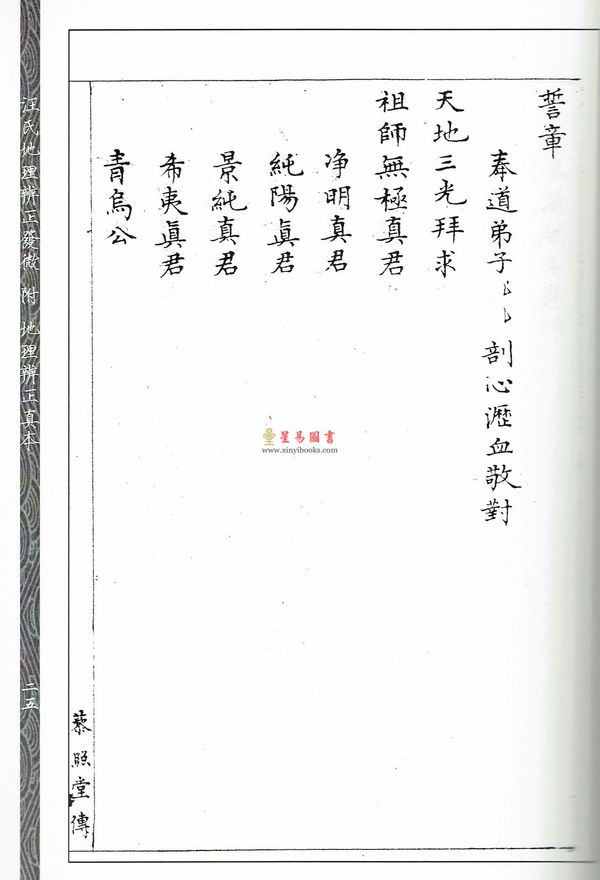 誓章
奉道弟子〻〻 剖心瀝血敬對
天地三光拜求
祖師無極真君
净明真君
純陽眞君
景純真君
希夷眞君
青烏公
蔡照堂傳
汪氏地理辨正發微 附 地理辨正真本
二五
星易圖書
www.xinyibooks.com